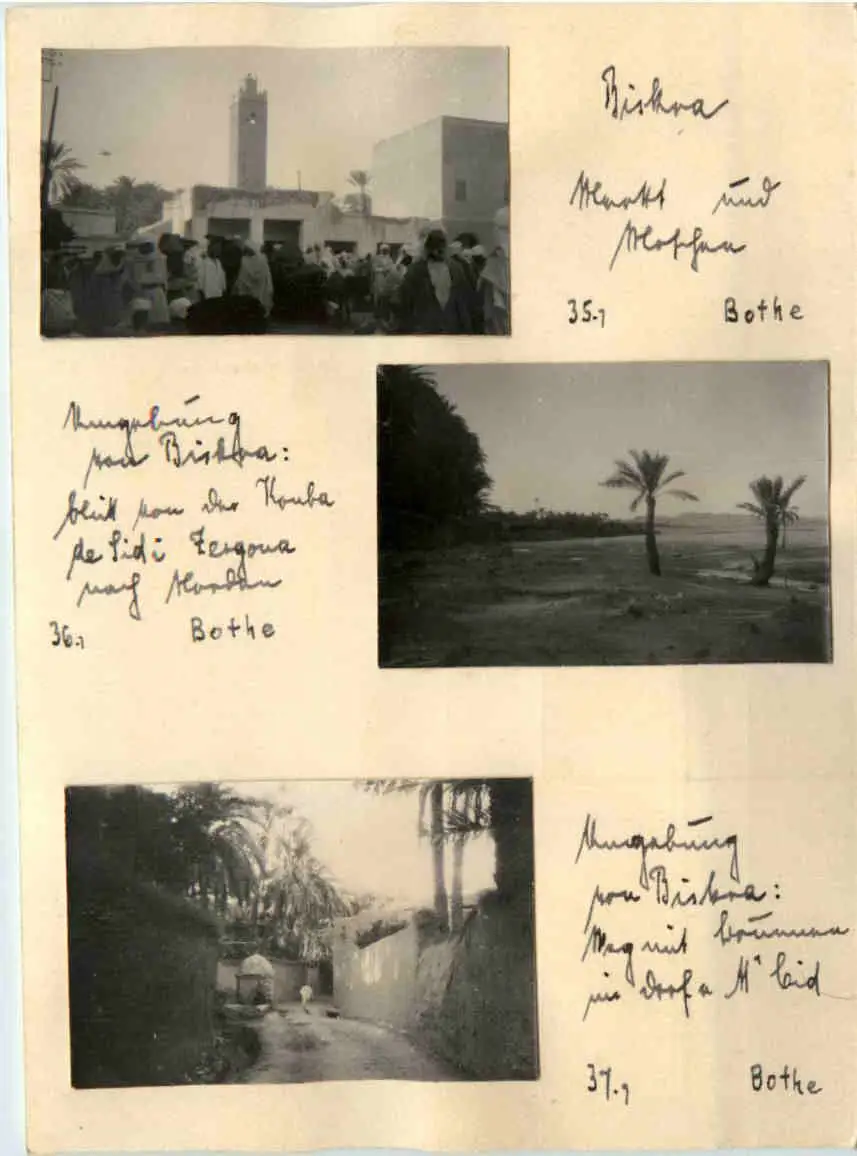 Biskra
Markt und
Moschee
35., Bothe
Umgebung
von Biskra:
blick von der Kouba
de Sidi Zergoua
nach Norden
36., Bothe
Umgebung
von Biskra:
Weg mit brunnen
im dorfe M'Cid
37., Bothe